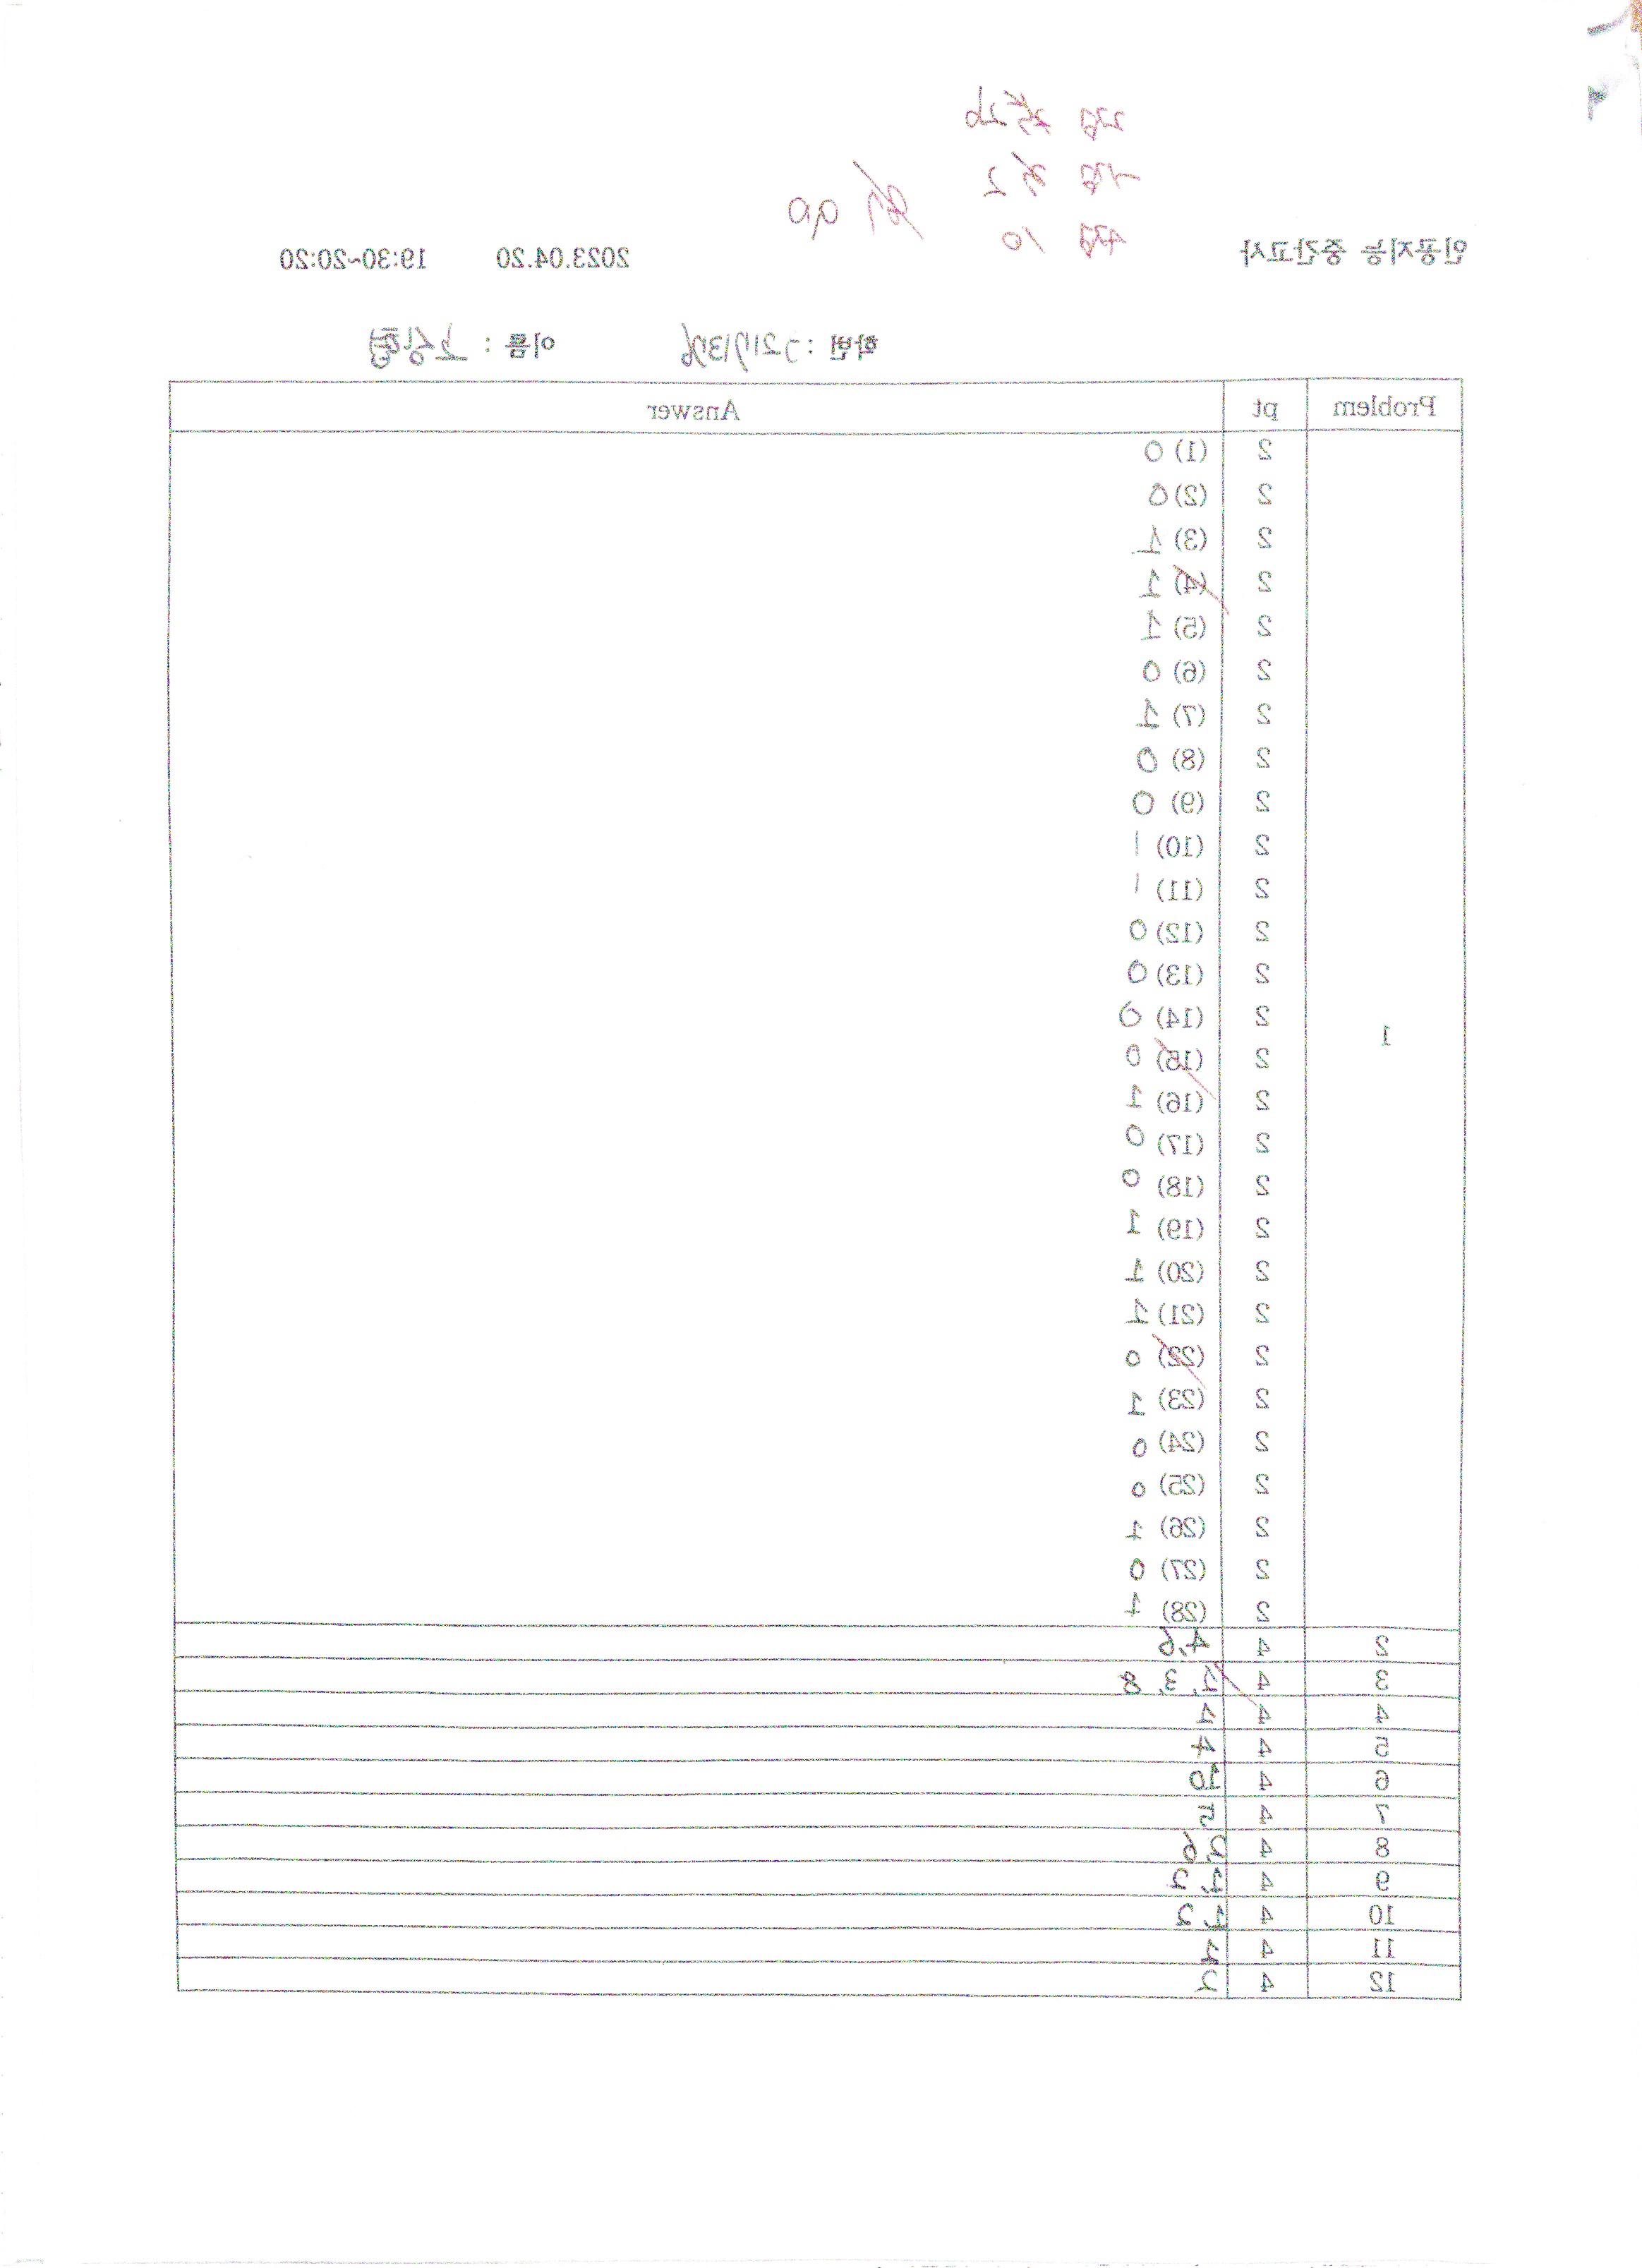 2점 26
1점 2
4점 10
90
인공지능 중간고사 2023.04.20 19:30~20:20
학번 : 이름 :
Problem pt Answer
1
2 (1) 0
2 (2) 0
2 (3) 1
2 (4) 1
2 (5) 1
2 (6) 0
2 (7) 1
2 (8) 0
2 (9) 0
2 (10) 1
2 (11) 1
2 (12) 0
2 (13) 0
2 (14) 0
2 (15) 0
2 (16) 1
2 (17) 0
2 (18) 0
2 (19) 1
2 (20) 1
2 (21) 1
2 (22) 0
2 (23) 1
2 (24) 0
2 (25) 0
2 (26) 1
2 (27) 0
2 (28) 1
2 4 4,6
3 4 3, 8
4 4 1
5 4 4
6 4 10
7 4 5
8 4 2,6
9 4 1, 2
10 4 1, 2
11 4 1
12 4 2